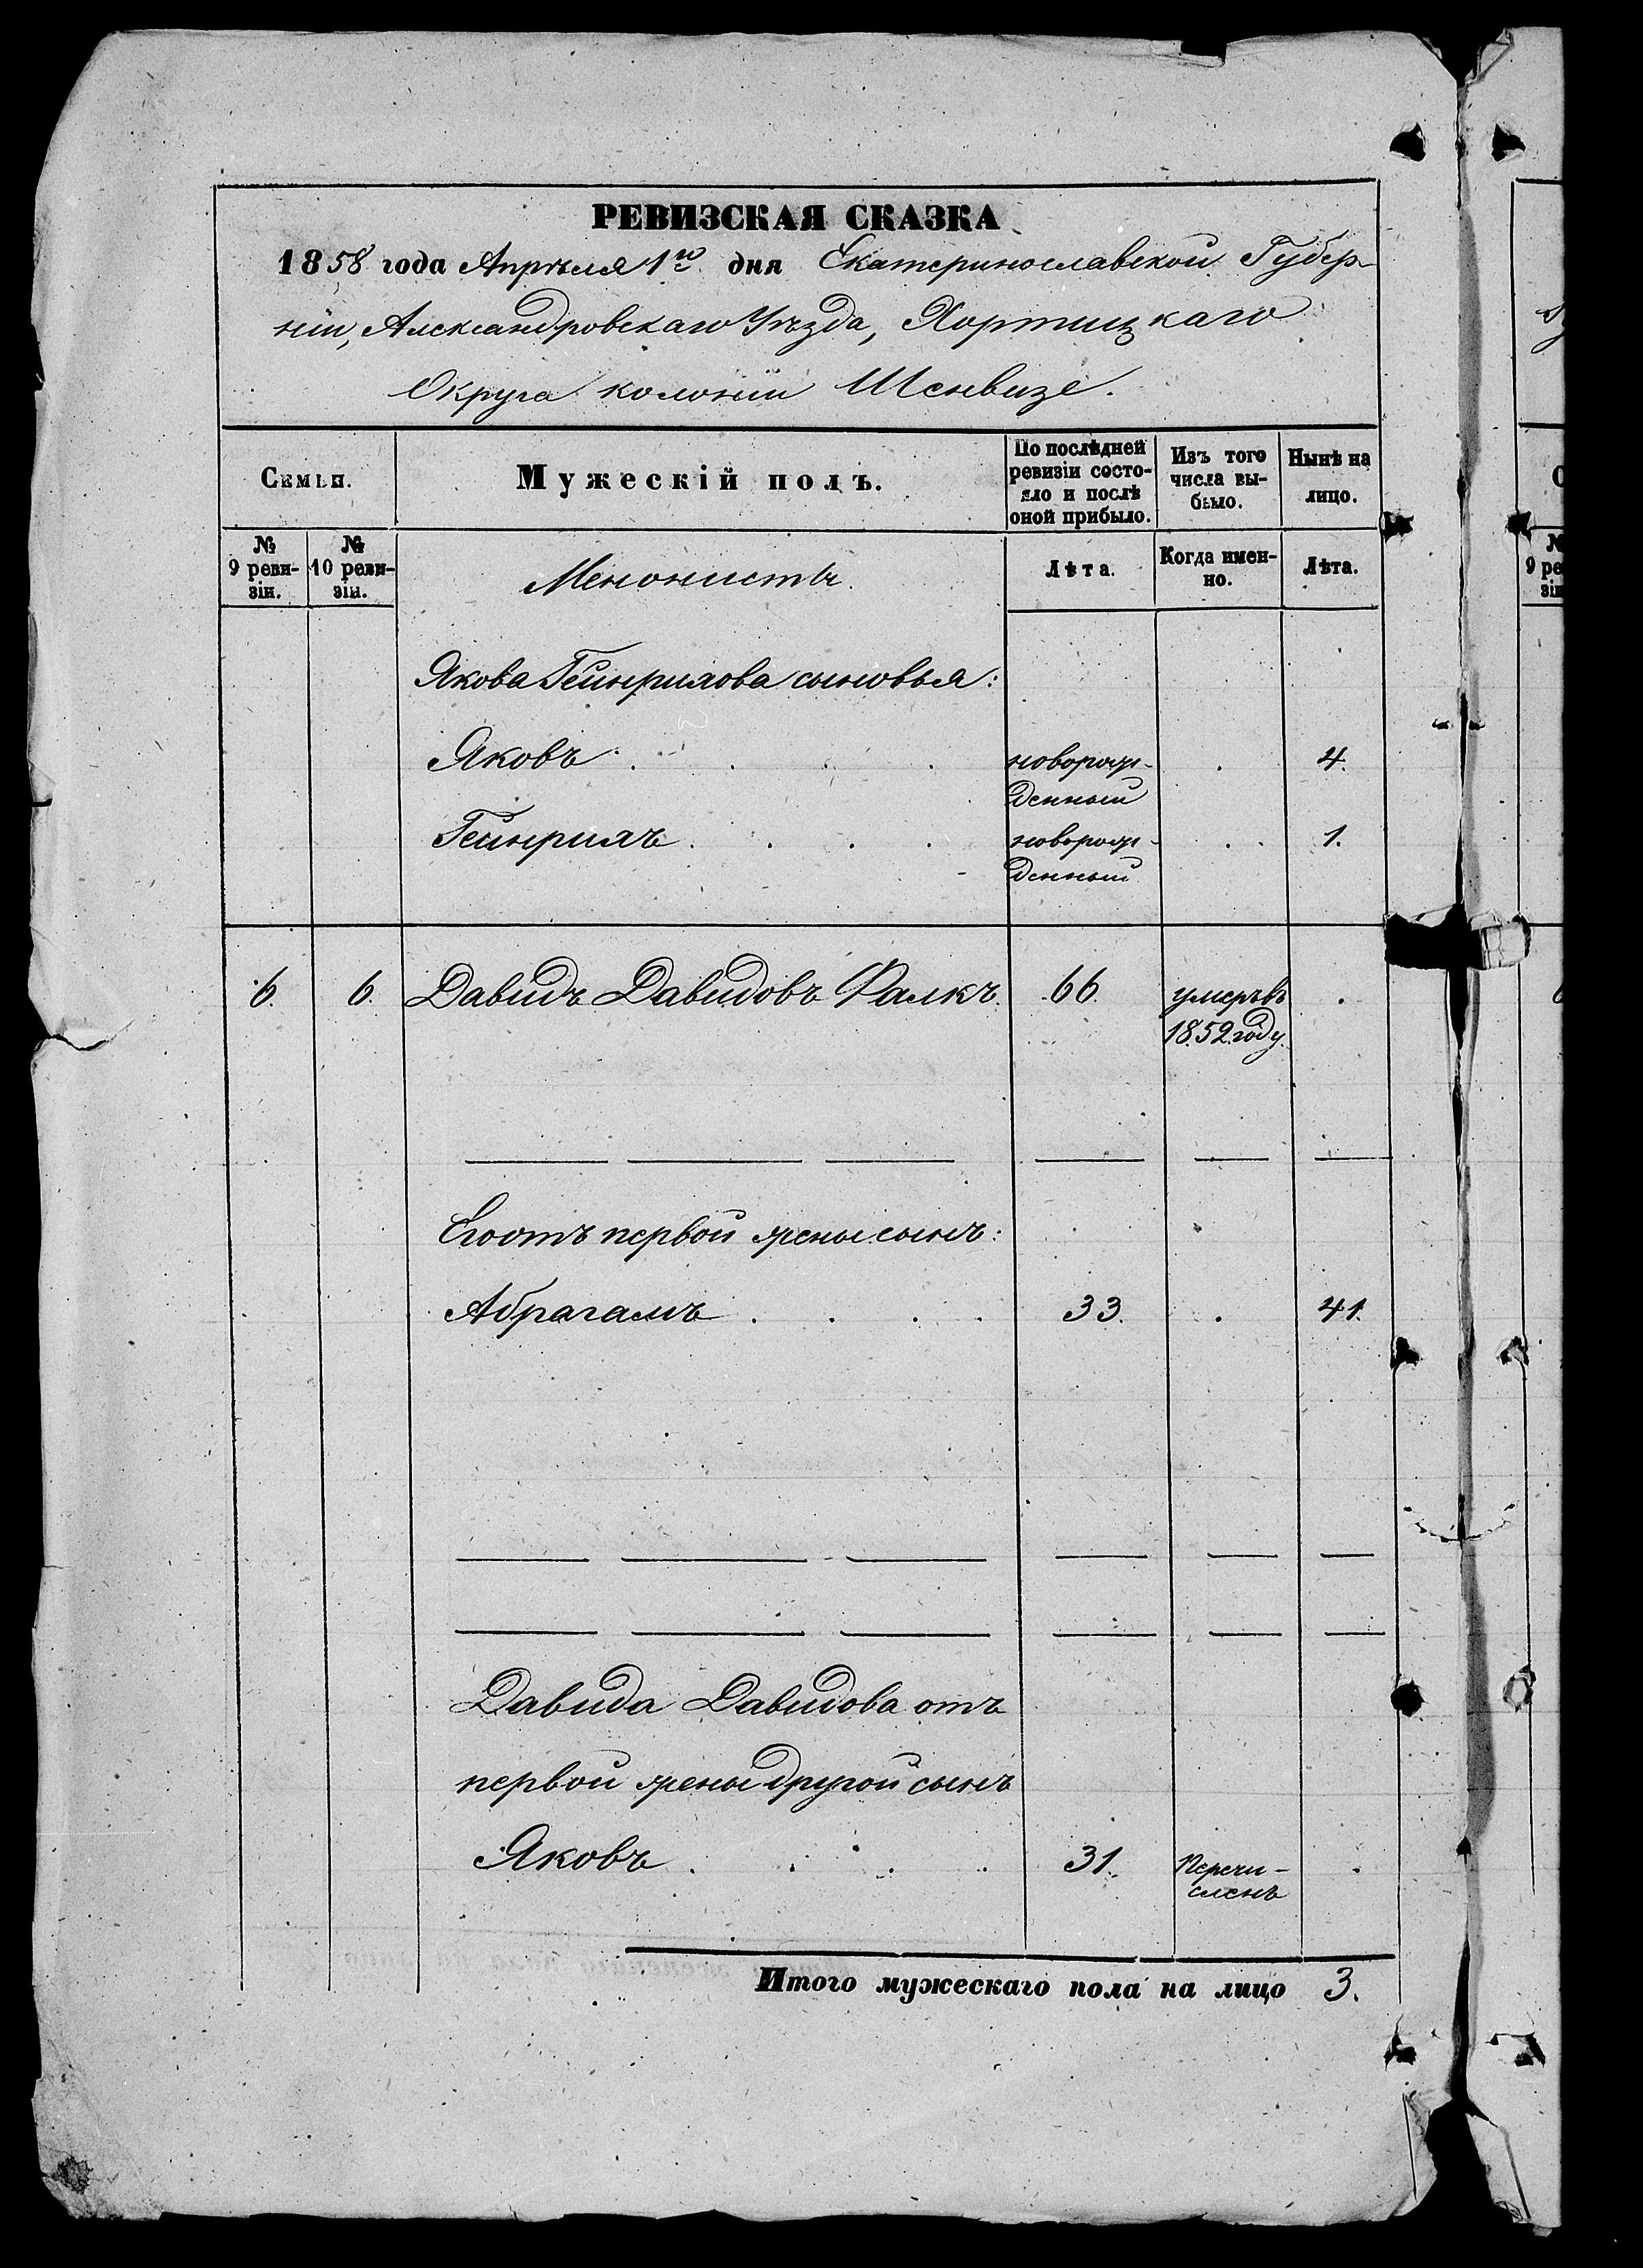 РЕВИЗСКАЯ СКАЗКА
1858 года Апрѣля 1го дня Екатеринославской Губер-
нiи, Александровскаго Уѣзда, Хортицкаго
Округа колонiи Шенвизе.
Семьи.
Мужескiй полъ.
По послѣдней ревизiи состо-
яло и послѣ оной прибыло.
Изъ того числа вы-
было.
Нынѣ на лицо.
№ 9 реви-
зiи.
№ 10 реви-
зiи.
Менонисты
Лѣта.
Когда имен-
но.
Лѣта.
Якова Гейнрихова сыновья:
Яковъ . . . . новорож- . 4.
денный
Гейнрихъ . . . . новорож- . . 1.
денный
6. 6. Давидъ Давидовъ Фалкъ. 66. умеръ въ .
1852 году.
Его отъ первой жены сынъ:
Абрагамъ . . . . 33. . 41.
Давида Давидова отъ
первой жены другой сынъ
Яковъ . . . . 31. Перечи- .
сленъ
Итого мужескаго пола на лицо 3.
№
9 ре
зiи